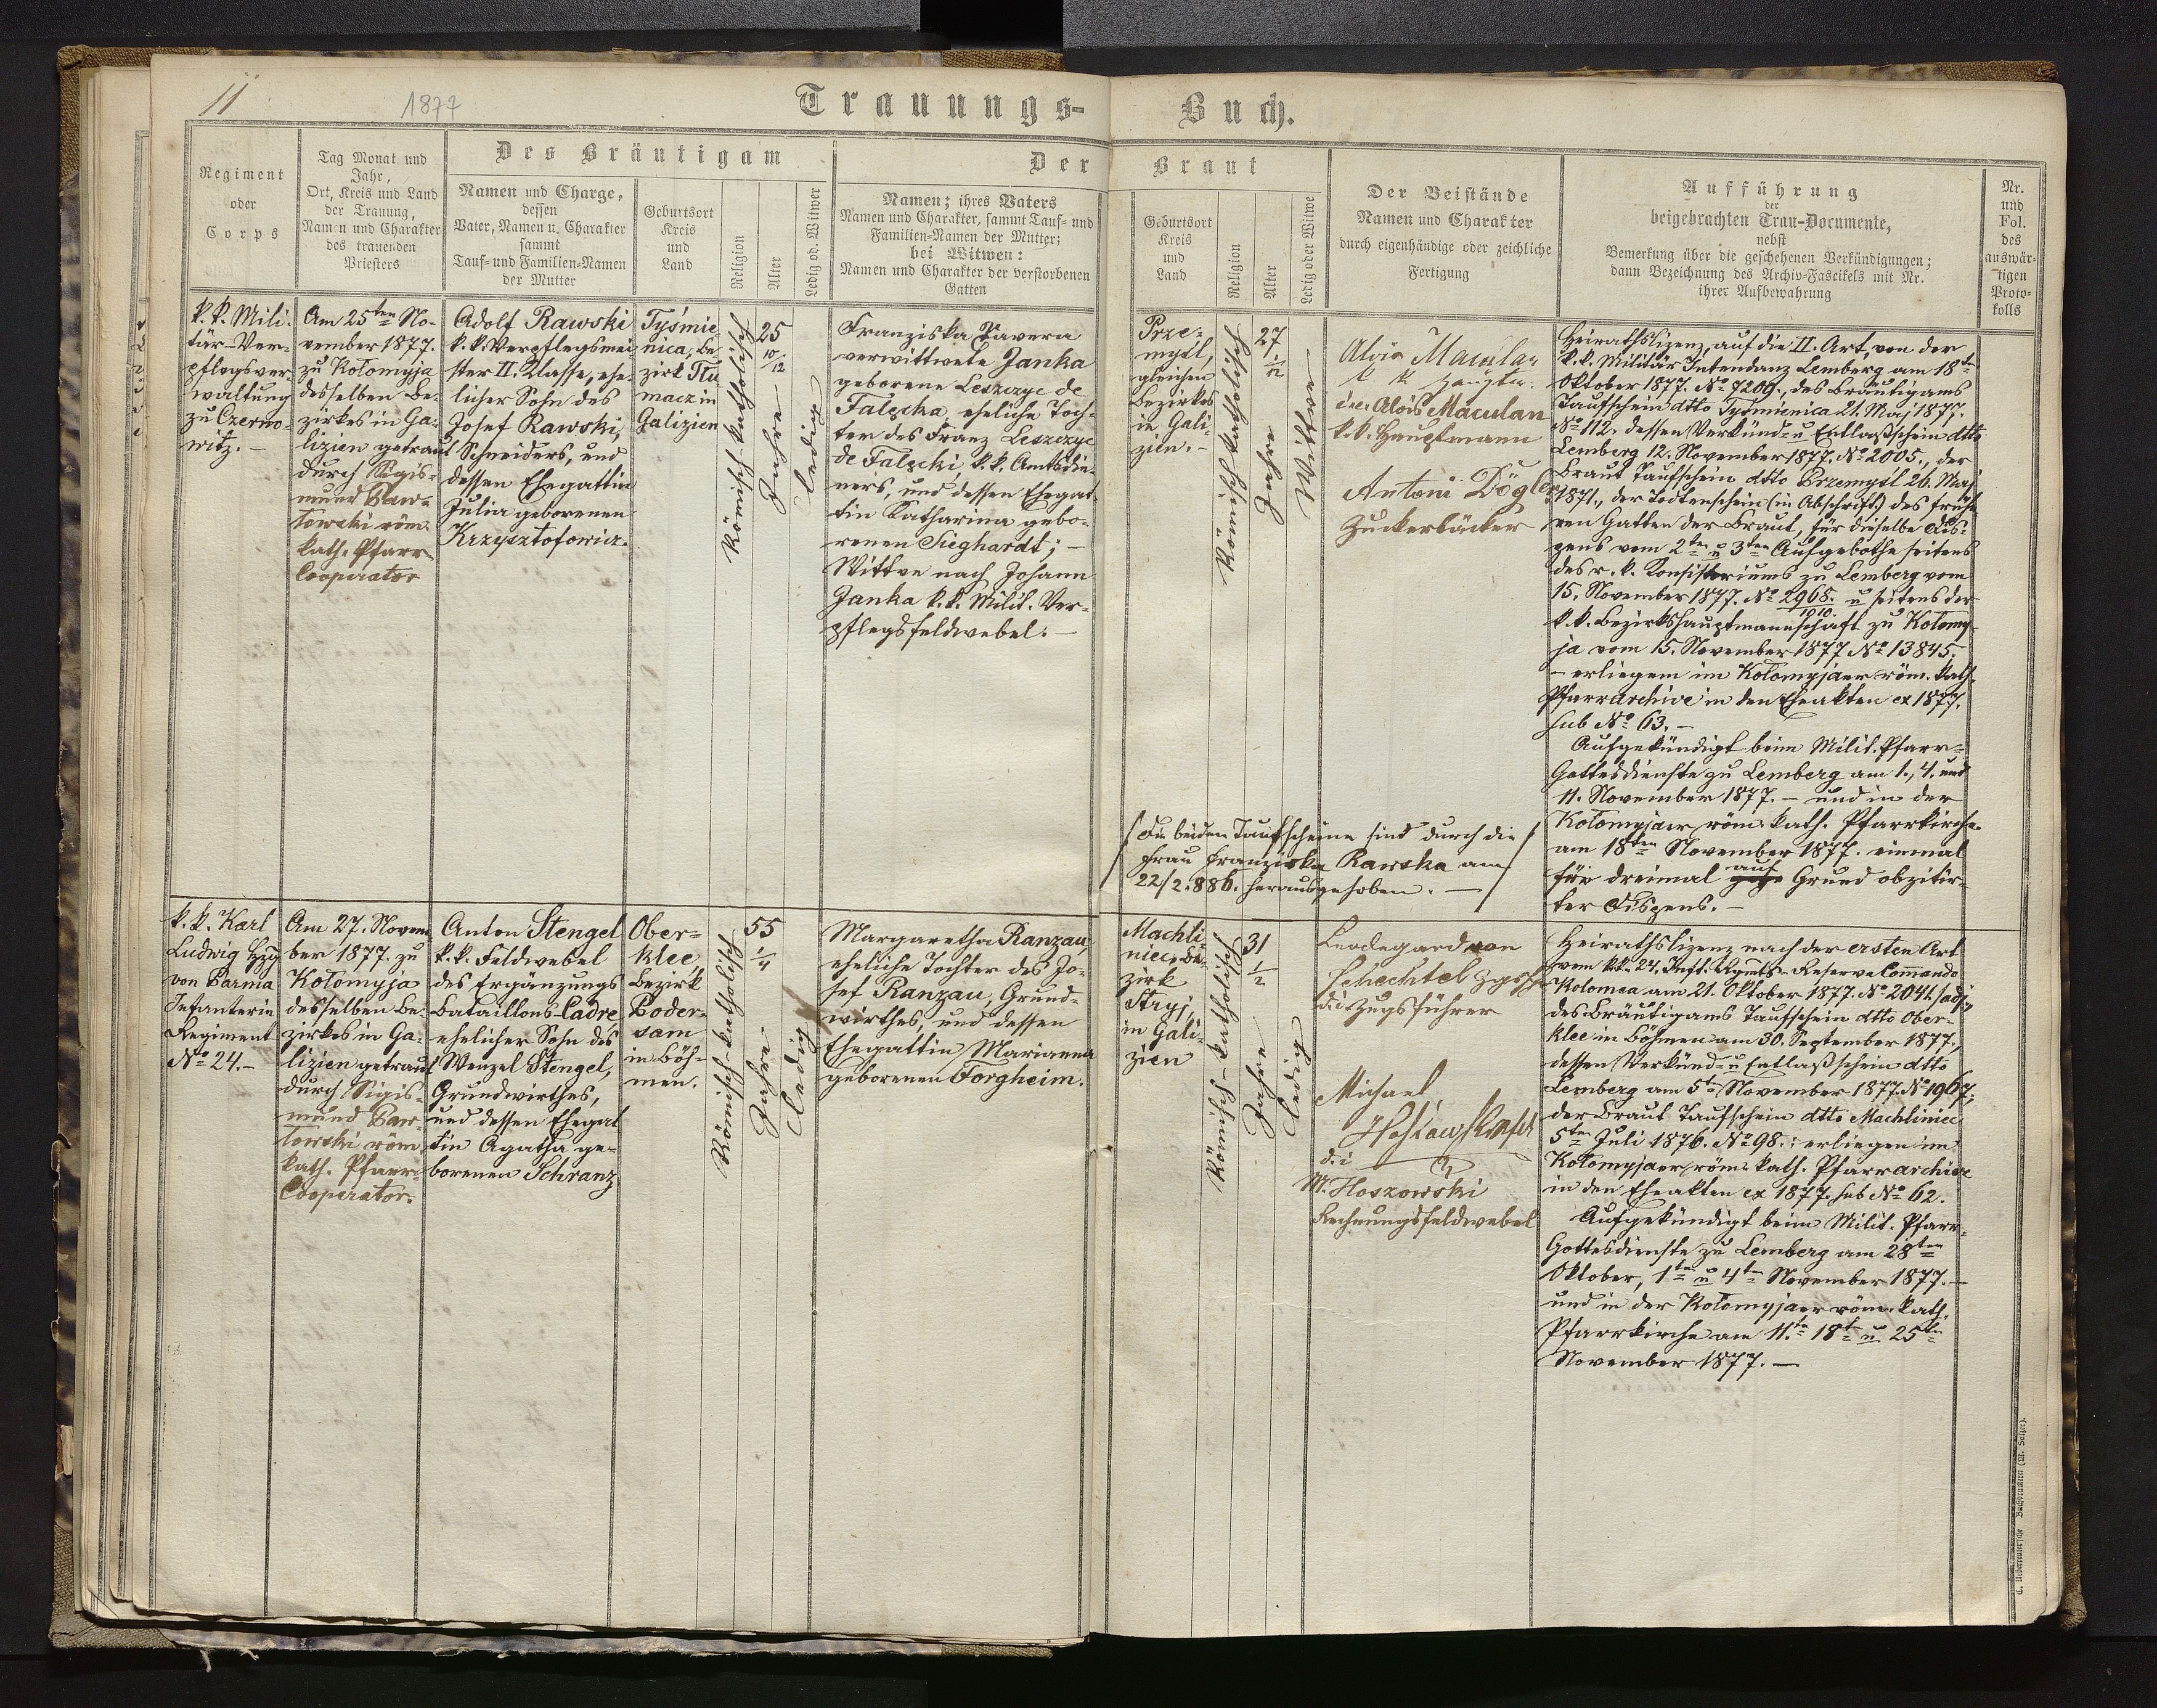 11
1877
Trauungs-
Buch.
Regiment
oder
Corps
Tag Monat und
Jahr,
Ort, Kreis und Land
der Trauung,
Namen und Charakter
des trauenden
Priesters
Des Bräutigam
Namen und Charge,
dessen
Vater, Namen u. Charakter
sammt
Tauf- und Familien-Namen
der Mutter
Geburtsort
Kreis
und
Land
Religion
Alter
Ledig od. Witwer
Der
Braut
Namen; ihres Vaters
Namen und Charakter, sammt Tauf- und
Familien-Namen der Mutter;
bei Witwen:
Namen und Charakter der verstorbenen
Gatten
Geburtsort
Kreis
und
Land
Religion
Alter
Ledig oder Witwe
Der Beistände
Namen und Charakter
durch eigenhändige oder zeichliche
Fertigung
Aufführung
der
beigebrachten Trau-Documente,
nebst
Bemerkung über die geschehenen Verkündigungen;
dann Bezeichnung des Archiv-Fascikels mit Nr.
ihrer Aufbewahrung
Nr.
und
Fol.
des
auswär-
tigen
Proto-
kolls
k. k. Mili-
tär-Ver-
pflegsver-
waltung
zu Czerno-
witz. –
Am 25ten No-
vember 1877.
zu Kołomyja
desselben Be-
zirkes in Ga-
lizien getraut
durch Sigis-
mund Paw-
łowski röm.
kath. Pfarr
Cooperator
Adolf Rawski
k. k. Verpflegsmei-
ster II. Klasse, ehe-
licher Sohn des
Josef Rawski,
Schneiders, und
dessen Ehegattin
Julia geborenen
Krzysztofowicz.
Tyśmie-
nica, Be-
zirk Tłu-
macz in
Galizien
Römisch-katholisch
25
10/12
Jahre
ledig
Franziska Xavera
verwittwete Janka
geborene Leszczyc de
Falęcka, eheliche Toch-
ter des Franz Leszczyc
de Falęcki, k. k. Amtsdie-
ners, und dessen Ehegat-
tin Katharina gebo-
renen Sieghardt; –
Wittwe nach Johann
Janka k. k. Milit. Ver-
pflegsfeldwebel. –
Prze-
myśl,
gleichen
Bezirkes
in Gali-
zien. –
Römisch-katholisch
27
1/12
Jahre
Wittwe
Alois Maculan
k k Hauptm.
i. e. Alois Maculan
k. k. Hauptmann
Antoni Dögler
Zuckerbäcker
Heirathslizenz, auf die II. Art, von der
k. k. Militär Intendanz Lemberg am 18t
Oktober 1877. No 7200., des Bräutigams
Taufschein dtto Tyśmienica 21. Maj 1877.
No 112. dessen Verkünd- u Entlaßschein dtto
Lemberg 12. November 1877. No 2005., der
Braut Taufschein dtto Przemyśl 26. Maj
1871., der Todtenschein (in Abschrift) des frühe-
ren Gatten der Braut, für dieselbe Dis-
pens vom 2ten u 3ten Aufgebothe seitens
des r. k. Konsistoriums zu Lemberg vom
15. November 1877. No 2968. u seitens der
1010.
k. k. Bezirkshauptmannschaft zu Kołomy-
ja vom 15. November 1877 No 13845.
– erliegen im Kołomyjaer röm. kath.
Pfarrarchive in den Eheakten ex 1877.
sub No 63. –
Aufgekündigt beim Milit. Pfarr-
Gottesdienste zu Lemberg am 1., 4. und
11. November 1877. – und in der
Kołomyjaer röm. kath. Pfarrkirche
am 18ten November 1877. einmal
für dreimal auf Grund obzitir-
ter Dispens. –
Die beiden Taufscheine sind durch die
Frau Franziska Rawska am
22/2. 886. herausgehoben. –
k. k. Karl
Ludwig Hzg
von Parma
Infanterie
Regiment
No 24. –
Am 27. Novem-
ber 1877. zu
Kołomyja
desselben Be-
zirkes in Ga-
lizien getraut
durch Sigis-
mund Paw-
łowski röm.
kath. Pfarr
Cooperator.
Anton Stengel
k. k. Feldwebel
des Ergänzungs
Bataillons-Cadre
ehelicher Sohn des
Wenzel Stengel,
Grundwirthes,
und dessen Ehegat-
tin Agatha ge-
borenen Schranz
Ober-
klee,
Bezirk
Poder-
sam
in Böh-
men.
Römisch-katholisch
55
1/4
Jahre
ledig
Margaretha Ranzau,
eheliche Tochter des Jo-
sef Ranzau, Grund-
wirthes, und dessen
Ehegattin Marianna
geborenen Forgheim.
Machli-
niec, Be-
zirk
Stryj,
in Gali-
zien
Römisch-katholisch
31
1/2
Jahre
ledig
Leodegard von
Schechtel Zgsf
d. i. Zugsführer
Michael
Hoszowski
d. i
M. Hoszowski
Rechnungsfeldwebel
Heirathslizenz nach der ersten Art
vom k. k. 24. Inft. Rgmts-Reserve Commando
Kolomea am 21. Oktober 1877. No 2041/adj.,
des Bräutigams Taufschein dtto Ober-
klee in Böhmen am 30. September 1877.,
dessen Verkünd- u Entlaßschein dtto
Lemberg am 5t November 1877. No 1967;
der Braut Taufschein dtto Machliniec
5ten Juli 1876. No 98.: erliegen im
Kołomyjaer röm. kath. Pfarrarchive
in den Eheakten ex 1877. sub No 62.
Aufgekündigt beim Milit. Pfarr-
Gottesdienste zu Lemberg am 28ten
Oktober, 1ten u 4ten November 1877. –
und in der Kołomyjaer röm. kath.
Pfarrkirche am 11.t 18t u 25ten
November 1877. –
C. Ueberreuter'sche Buchdruckerei (M. Salzer).